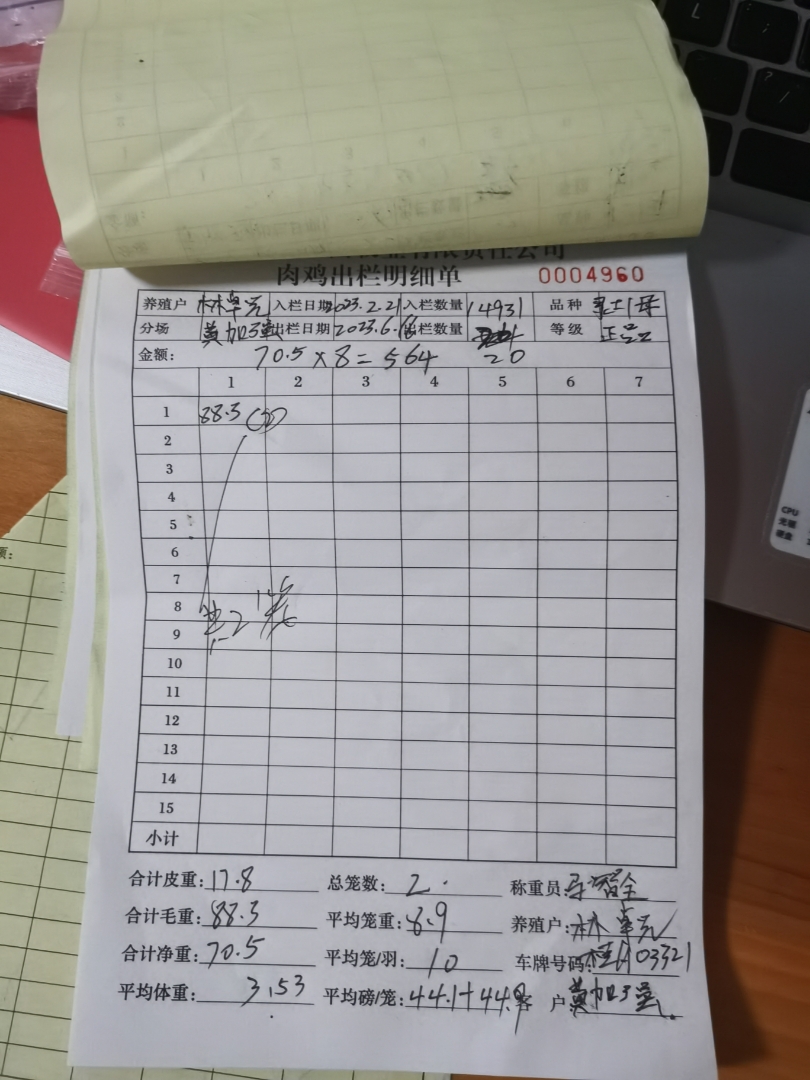 有限责任公司
肉鸡出栏明细单 0004960
养殖户 林 入栏日期 2023.2.21 入栏数量 14931 品种
分场 黄加强 出栏日期 2023.6.16 出栏数量 20 等级 正品
金额: 70.5×8=564
1 2 3 4 5 6 7
1 88.3 ②
2
3
4
5
6
7
8
9
10
11
12
13
14
15
小计
共2笼
合计皮重: 17.8 总笼数: 2 称重员:
合计毛重: 88.3 平均笼重: 8.9 养殖户: 林
合计净重: 70.5 平均笼/羽: 10 车牌号码: 03321
平均体重: 3.53 平均磅/笼: 44.1+44. 客户 黄加强
CPU